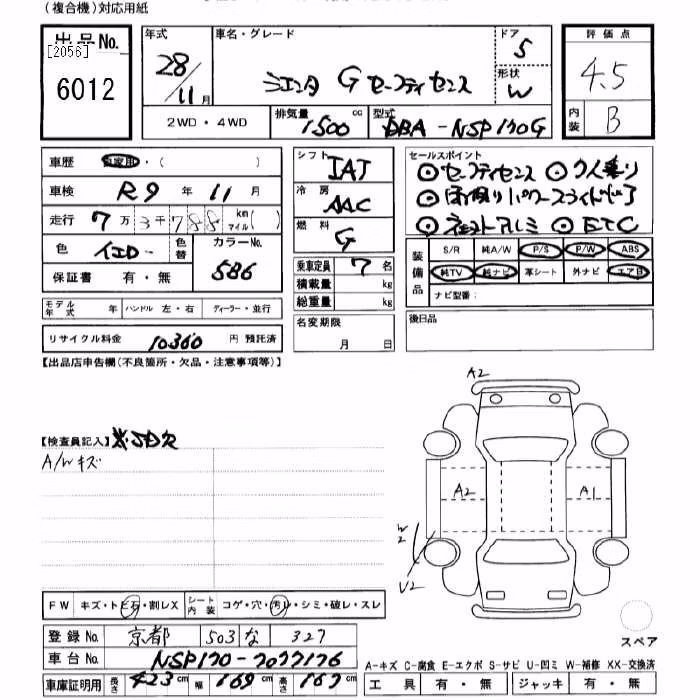 (複合機)対応用紙
出品No. [2056] 6012
年式 28/11月
車名・グレード シエンタ G セーフティセンス
ドア 5
形状 W
評価点 4.5
内装 B
2WD・4WD
排気量 1500 cc
型式 DBA-NSP170G
車歴 自家用・( )
車検 R9年 11月
走行 7万3千788 km マイル( )
色 イエロー 色替 カラーNo. 586
保証書 有・無
シフト IAT
冷房 AAC
燃料 G
乗車定員 7名
積載量 kg
総重量 kg
セールスポイント
◎セーフティセンス ◎7人乗り
◎両側パワースライドドア
◎ネストアルミ ◎ETC
装備品 S/R 純A/W P/S P/W ABS
純TV 純ナビ 革シート 外ナビ エアB
ナビ型番:
モデル年式 年 ハンドル 左・右 ディーラー・並行
リサイクル料金 10360 円 預託済
名変期限 月 日
後日品
【出品店申告欄(不良箇所・欠品・注意事項等)】
【検査員記入】
A/Wキズ
A2
A2 A1
W2
U2
FW キズ・トビ石・割レX
シート内装 コゲ・穴・汚レ・シミ・破レ・スレ
登録No. 京都 503 な 327
車台No. NSP170-7077176
車庫証明用 長さ 423cm 幅 169cm 高さ 167cm
スペア
A-キズ C-腐食 E-エクボ S-サビ U-凹ミ W-補修 XX-交換済
工具 有・無 ジャッキ 有・無